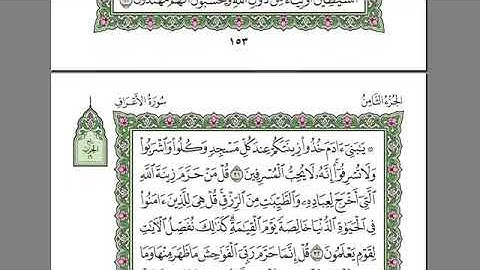 ٱلشَّيَٰطِينَ أَوْلِيَآءَ مِن دُونِ ٱللَّهِ وَيَحْسَبُونَ أَنَّهُم مُّهْتَدُونَ
١٥٣
الجُزءُ الثَّامِنُ سُورَةُ الأَعْرَافِ
الحزب
۞ يَٰبَنِىٓ ءَادَمَ خُذُوا۟ زِينَتَكُمْ عِندَ كُلِّ مَسْجِدٍ وَكُلُوا۟ وَٱشْرَبُوا۟
وَلَا تُسْرِفُوٓا۟ ۚ إِنَّهُۥ لَا يُحِبُّ ٱلْمُسْرِفِينَ ٣١ قُلْ مَنْ حَرَّمَ زِينَةَ ٱللَّهِ
ٱلَّتِىٓ أَخْرَجَ لِعِبَادِهِۦ وَٱلطَّيِّبَٰتِ مِنَ ٱلرِّزْقِ ۚ قُلْ هِىَ لِلَّذِينَ ءَامَنُوا۟
فِى ٱلْحَيَوٰةِ ٱلدُّنْيَا خَالِصَةً يَوْمَ ٱلْقِيَٰمَةِ ۗ كَذَٰلِكَ نُفَصِّلُ ٱلْءَايَٰتِ
لِقَوْمٍ يَعْلَمُونَ ٣٢ قُلْ إِنَّمَا حَرَّمَ رَبِّىَ ٱلْفَوَٰحِشَ مَا ظَهَرَ مِنْهَا وَمَا